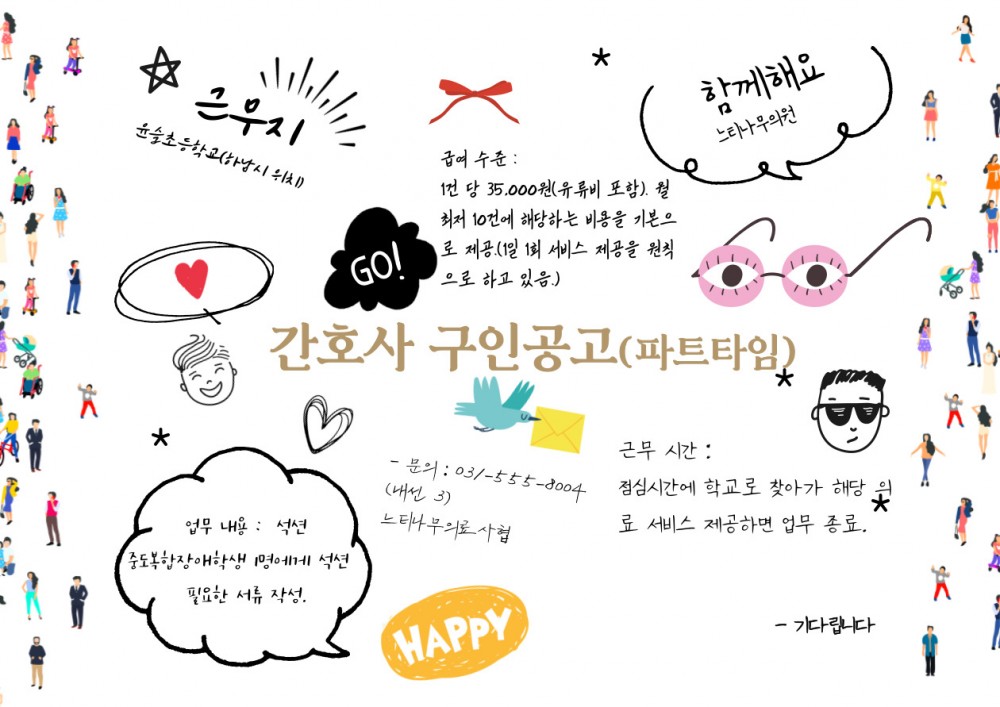 근무지
윤슬초등학교(하남시 위치)
급여 수준 :
1건 당 35.000원(유류비 포함). 월
최저 10건에 해당하는 비용을 기본으
로 제공.(1일 1회 서비스 제공을 원칙
으로 하고 있음.)
함께해요
느티나무의원
GO!
간호사 구인공고(파트타임)
업무 내용 : 석션
중도복합장애학생 1명에게 석션
필요한 서류 작성.
- 문의 : 031-555-8004
(내선 3)
느티나무의료사협
근무 시간 :
점심시간에 학교로 찾아가 해당 의
료 서비스 제공하면 업무 종료.
HAPPY
- 기다립니다